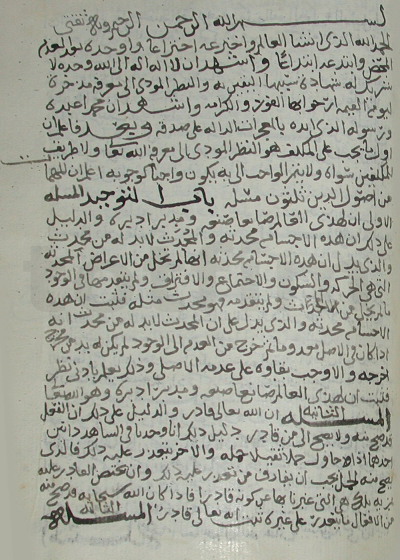 بسم الله الرحمن الرحيم وبه ثقتي
الحمد لله الذي انشا العالم واخترعه اختراعا واوجده بعد العدم
المحض وابتدعه ابتداعًا واشهد ان لا اله الا الله وحده لا
شريك له شهادة سببها النفس به والنظر المودي الى معرفته مدخرة
ليوم القيمه ارجوا بها الفوز والكرامه واشهد ان محمدا عبده
ورسوله الذي ايده بالمعجزات الداله على صدقه وبعد فاعلم ان
اول ما يجب على المكلف هو النظر المودي الى معرفة الله تعالى ولا طريق
للمكلفين سواه ولا يتم الواجب الا به يكون واجبا كوجوبه اعلم ان
من اصول الدين ثلثون مسئله باب التوحيد المسله
الاولى ان لهذا العالم صانعا صنعه ومدبرا دبره والدليل
على ذلك ان هذه الاجسام محدثه والمحدث لا بد له من محدث
والذي يدل ان هذه الاجسام محدثه انها لم تخل من الاعراض المحدثه
التي هي الحركه والسكون والاجتماع والافتراق ولم يتقدمها في الوجود
ما لم يخل من المحدث ولم يتقدمه فهو محدث مثله فثبت ان هذه
الاجسام محدثه والذي يدل على ان المحدث لا بد له من محدث انه
اذا كان في الاصل معدوما ثم خرج من العدم الى الوجود لم يكن له بد من مخرج
اخرجه والا وجب بقاوه على عدمه الاصلي وذلك يعلم بادنى نظر
فثبت ان لهذا العالم صانعا صنعه ومدبرا دبره وهو الله تعالى
المسله الثانيه ان الله تعالى قادر والدليل على ذلك ان الفعل
قد صح منه ولا يصح الا من قادر دليل ذلك انا وجدنا في الشاهد ذاتين
احدهما اذا حاول حمل الثقيل حمله والاخر يتعذر عليه ذلك فالذي
صح منه الحمل يجب ان يفارق من تعذر عليه ذلك وان يختص القادر عليه
بمزيه هي التي عبرنا بها عن كونه قادرا فاذا كان الله سبحانه قد صح منه
من الافعال ما يتعذر على غيره ثبت انه تعالى قادر المسله الثالثه